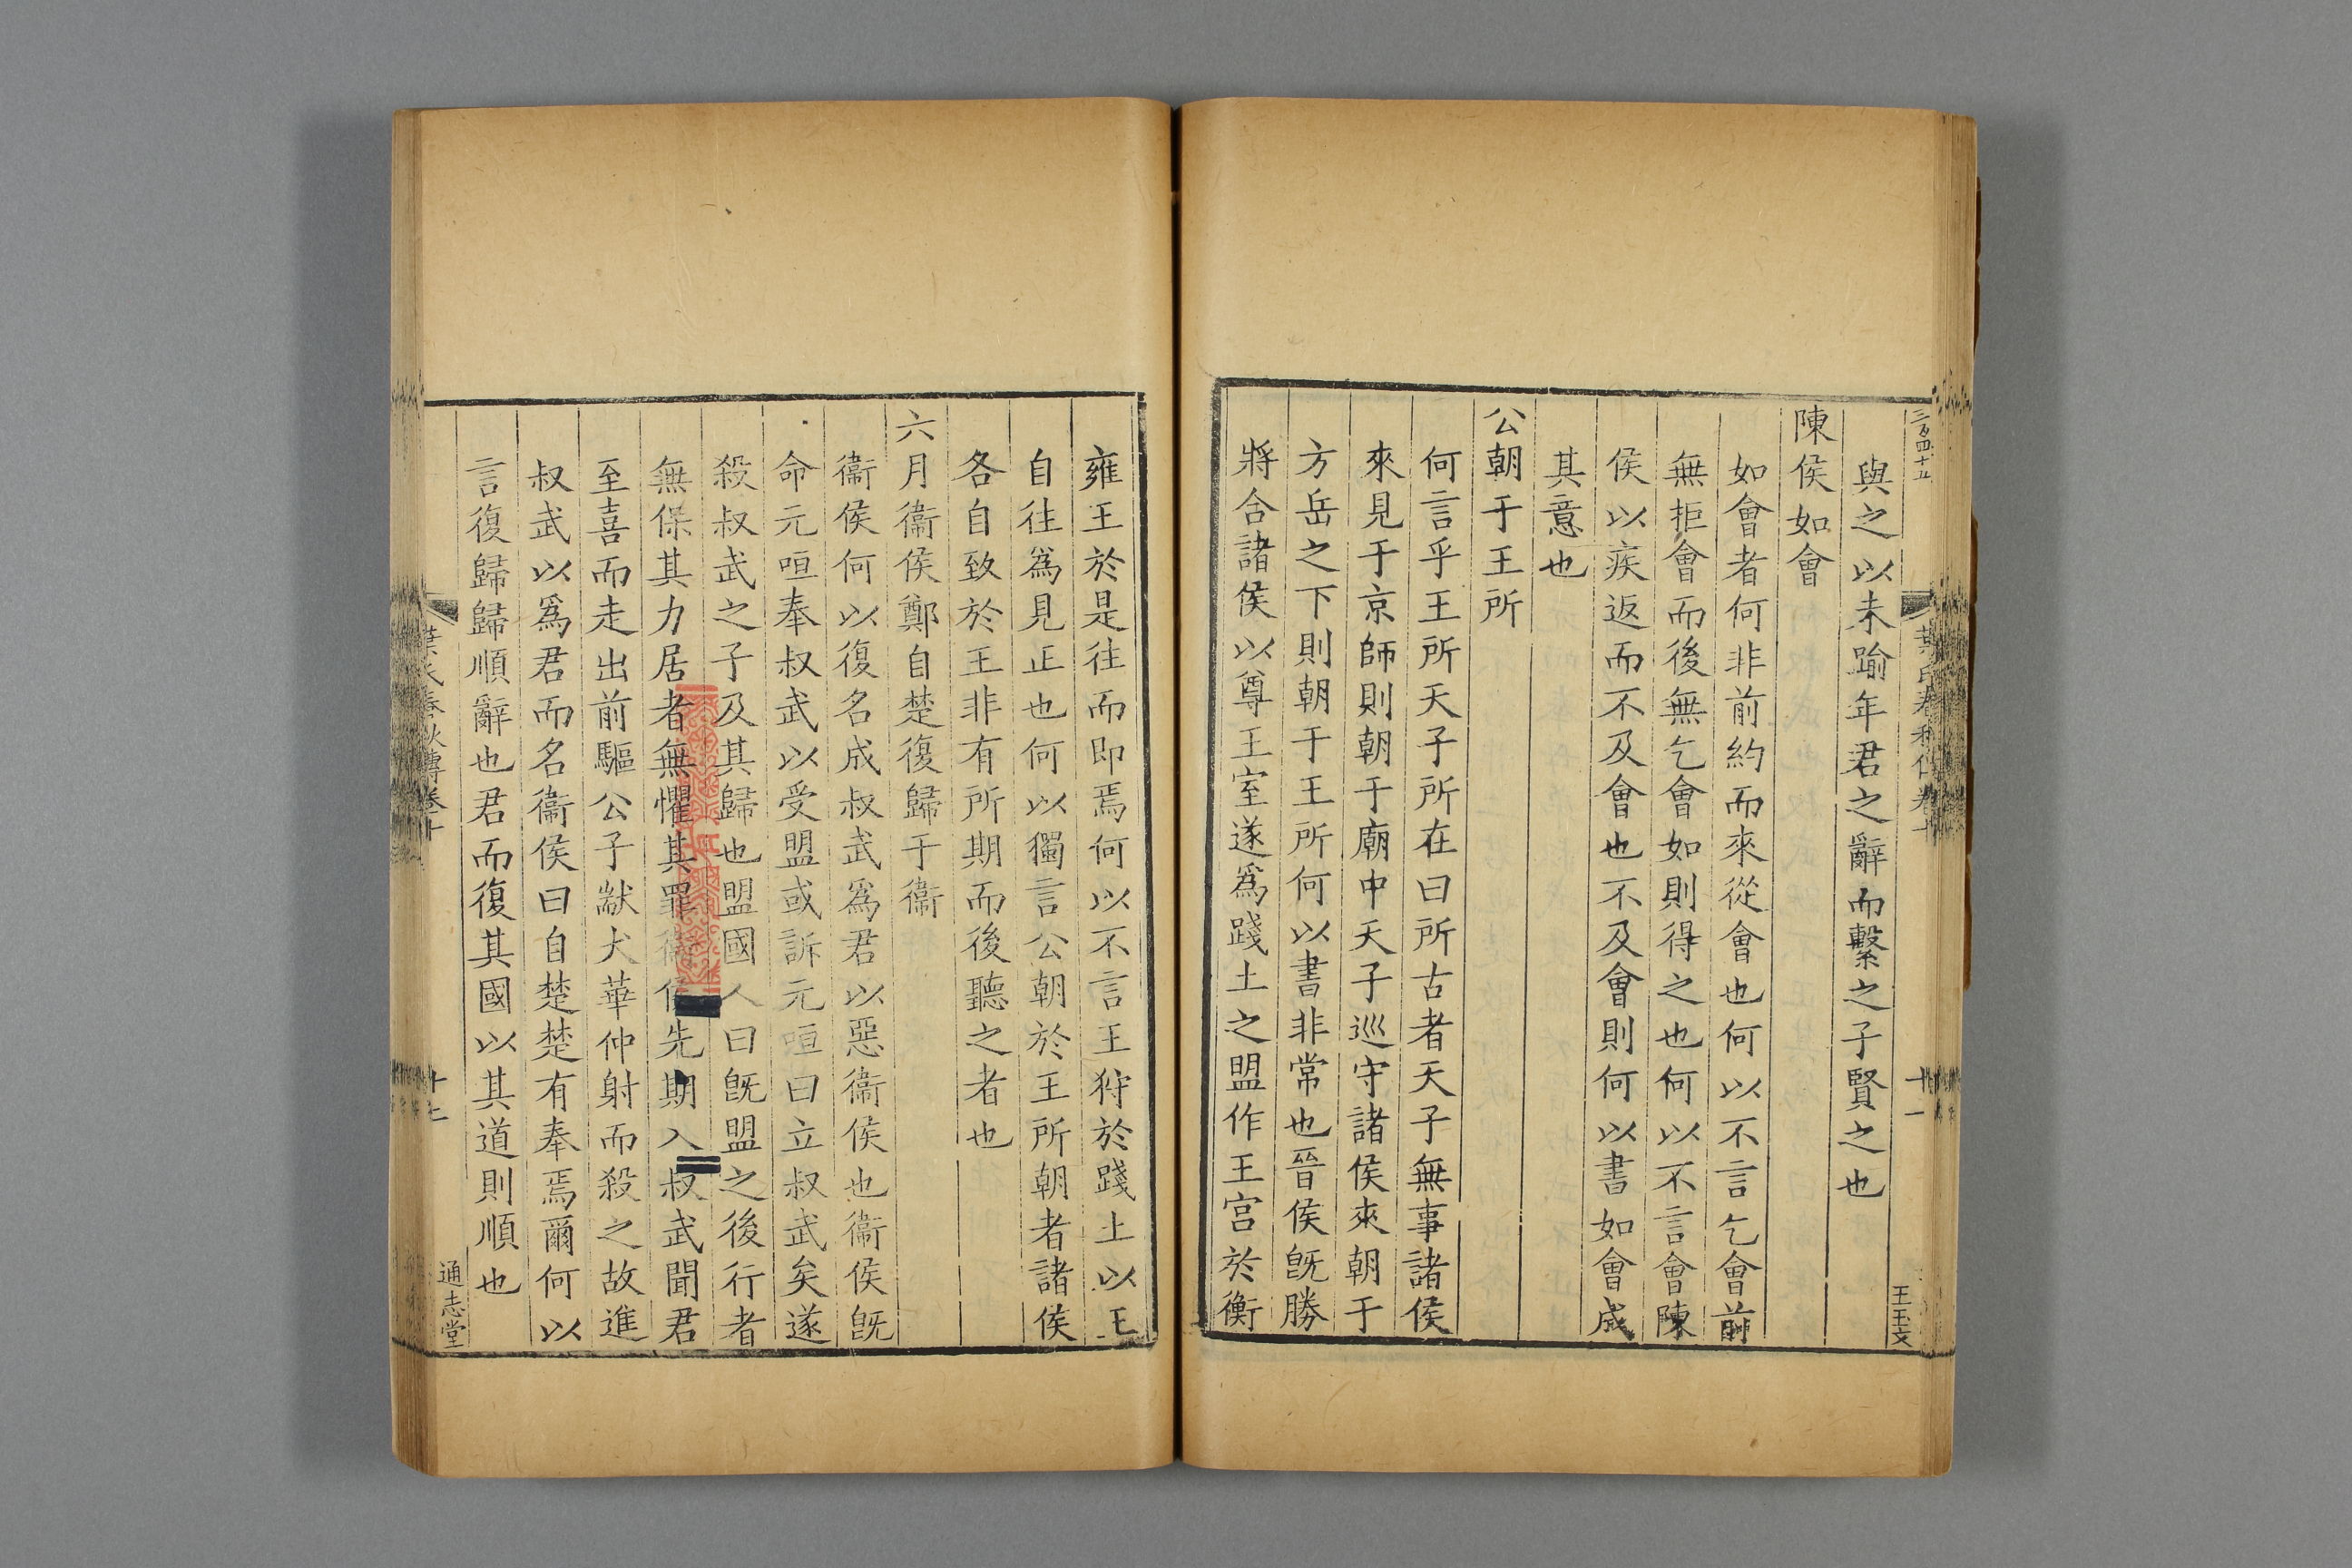 三百四十五
與之以未踰年君之辭而繫之子賢之也
陳侯如會
如會者何非前約而來從會也何以不言乞會前
無拒會而後無乞會如則得之也何以不言會陳
侯以疾返而不及會也不及會則何以書如會成
其意也
公朝于王所
何言乎王所天子所在曰所古者天子無事諸侯
來見于京師則朝于廟中天子巡守諸侯來朝于
方岳之下則朝于王所何以書非常也晉侯旣勝
將合諸侯以尊王室遂爲踐土之盟作王宮於衡
王玉文
雍王於是往而卽焉何以不言王狩於踐土以王
自往爲見正也何以獨言公朝於王所朝者諸侯
各自致於王非有所期而後聽之者也
六月衞侯鄭自楚復歸于衞
衞侯何以復名成叔武爲君以惡衞侯也衞侯旣
命元咺奉叔武以受盟或訴元咺曰立叔武矣遂
殺叔武之子及其歸也盟國人曰旣盟之後行者
無保其力居者無懼其罪衞侯先期入叔武聞君
至喜而走出前驅公子歂犬華仲射而殺之故進
叔武以爲君而名衞侯曰自楚楚有奉焉爾何以
言復歸歸順辭也君而復其國以其道則順也
葉氏春秋傳卷十
十七
通志堂